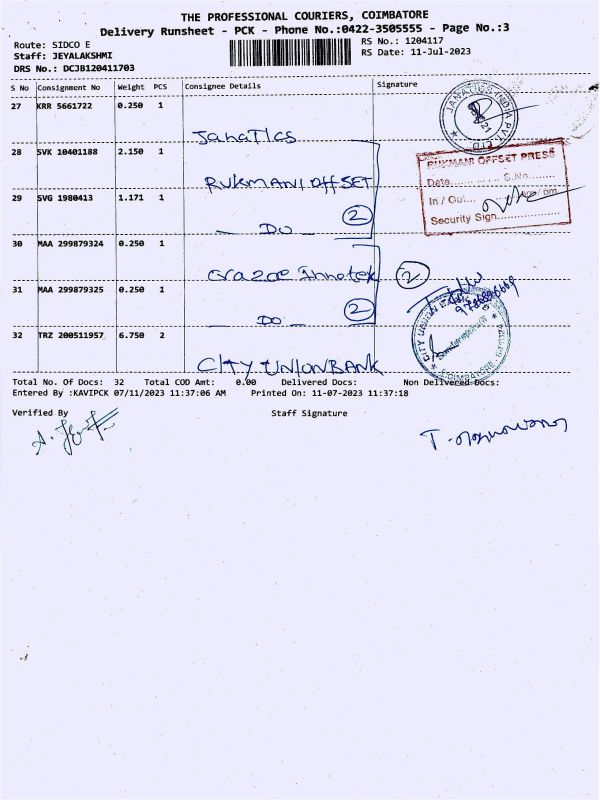 THE PROFESSIONAL COURIERS, COIMBATORE
Delivery Runsheet - PCK - Phone No.:0422-3505555 - Page No.:3
Route: SIDCO E
RS No.: 1204117
Staff: JEYALAKSHMI
RS Date: 11-Jul-2023
DRS No.: DCJB120411703
S No Consignment No Weight PCS Consignee Details Signature
27 KRR 5661722 0.250 1
Janatics
JANATICS INDIA PVT. LTD
28 SVK 10401188 2.150 1
RUKMANI OFFSET
RUKMANI OFFSET PRESS
Date............ S.No.........
In / Out... am/pm
Security Sign...............
29 SVG 1980413 1.171 1
— DO — 2
30 MAA 299879324 0.250 1
2
31 MAA 299879325 0.250 1
DO — 2
32 TRZ 200511957 6.750 2
CITY UNION BANK
COIMBATORE
Total No. Of Docs: 32 Total COD Amt: 0.00 Delivered Docs: Non Delivered Docs:
Entered By :KAVIPCK 07/11/2023 11:37:06 AM Printed On: 11-07-2023 11:37:18
Verified By Staff Signature